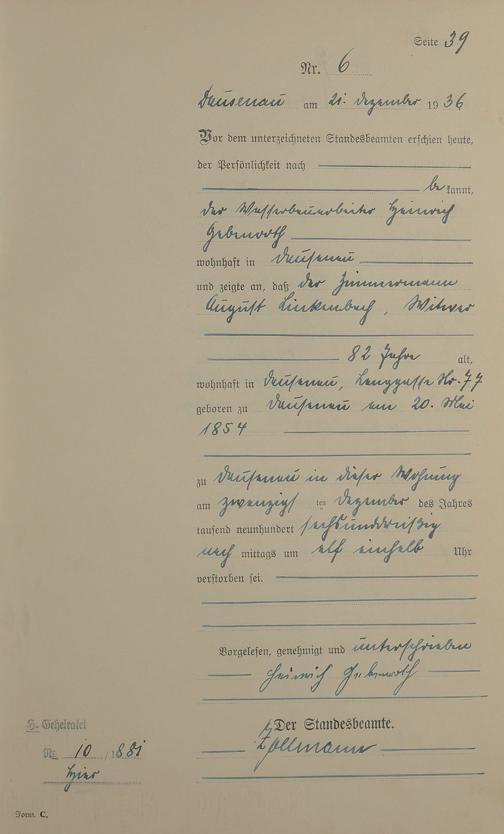 Seite 39
Nr. 6
Dausenau am 21. Dezember 1936
Vor dem unterzeichneten Standesbeamten erschien heute,
der Persönlichkeit nach
bekannt,
der Wasserbauarbeiter Heinrich
Gebenroth
wohnhaft in Dausenau
und zeigte an, daß der Zimmermann
August Linkenbach, Witwer
82 Jahre alt,
wohnhaft in Dausenau, Langgasse Nr. 77
geboren zu Dausenau am 20. Mai
1854
zu Dausenau in dieser Wohnung
am zwanzigsten Dezember des Jahres
tausend neunhundert sechsunddreißig
nachmittags um elf einhalb Uhr
verstorben sei.
Vorgelesen, genehmigt und unterschrieben
Heinrich Gebenroth
Der Standesbeamte.
H. Geheiratet
Nr. 10 / 1881
hier
Form. C.